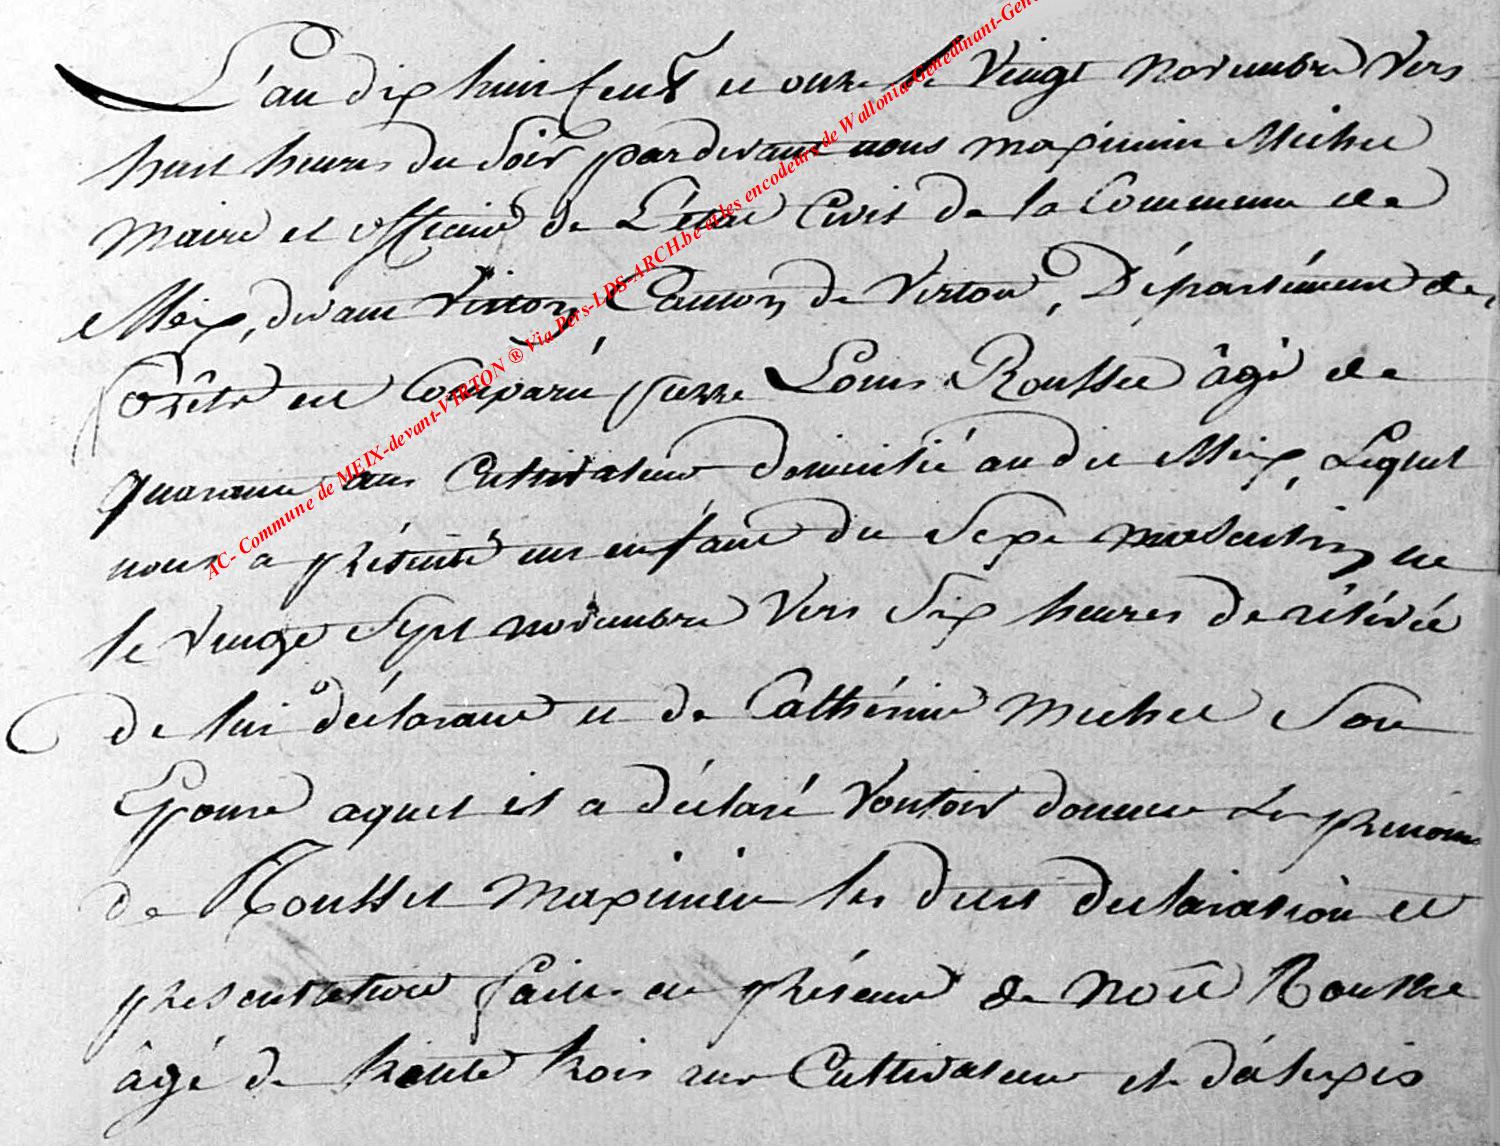 L'an dix huit cents et onze le Vingt novembre Vers
huit heures du Soir pardevant nous maximin Michel
Maire et officier de L'état Civil de la Commune de
Meix, devant Virton, Canton de Virton, Département des
forêts est Comparu pierre Louis Roussel âgé de
quarante ans Cultivateur domicilié au dit Meix, Lequel
nous a présenté un enfant du Sexe masculin, né
le Vingt Sept novembre Vers Six heures de rélévée
de lui déclarant et de Cathérine Michel Son
Epouse aquel il a déclaré Vouloir donner Les prénoms
de Roussel maximin les dites déclaration et
présentation faites en présence de Noël Roussel
âgé de trente trois ans Cultivateur et d'alexis
AC- Commune de MEIX-devant-VIRTON ® Via Pers-LDS-ARCH.be et les encodeurs de Wallonia-Genedinant-Gen